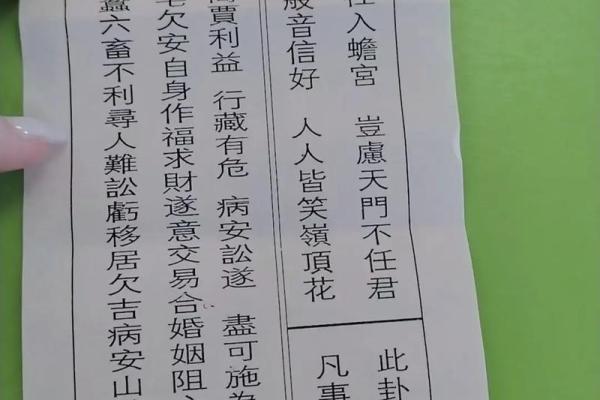 任入蟾宮 豈慮天門不任君
般音信好 人人皆笑嶺頂花
此卦
凡事
賈利益 行藏有危 病安訟遂 盡可施為
宅欠安自身作福求財遂意交易合婚姻阻
蠶六畜不利尋人難訟虧移居欠吉病安山